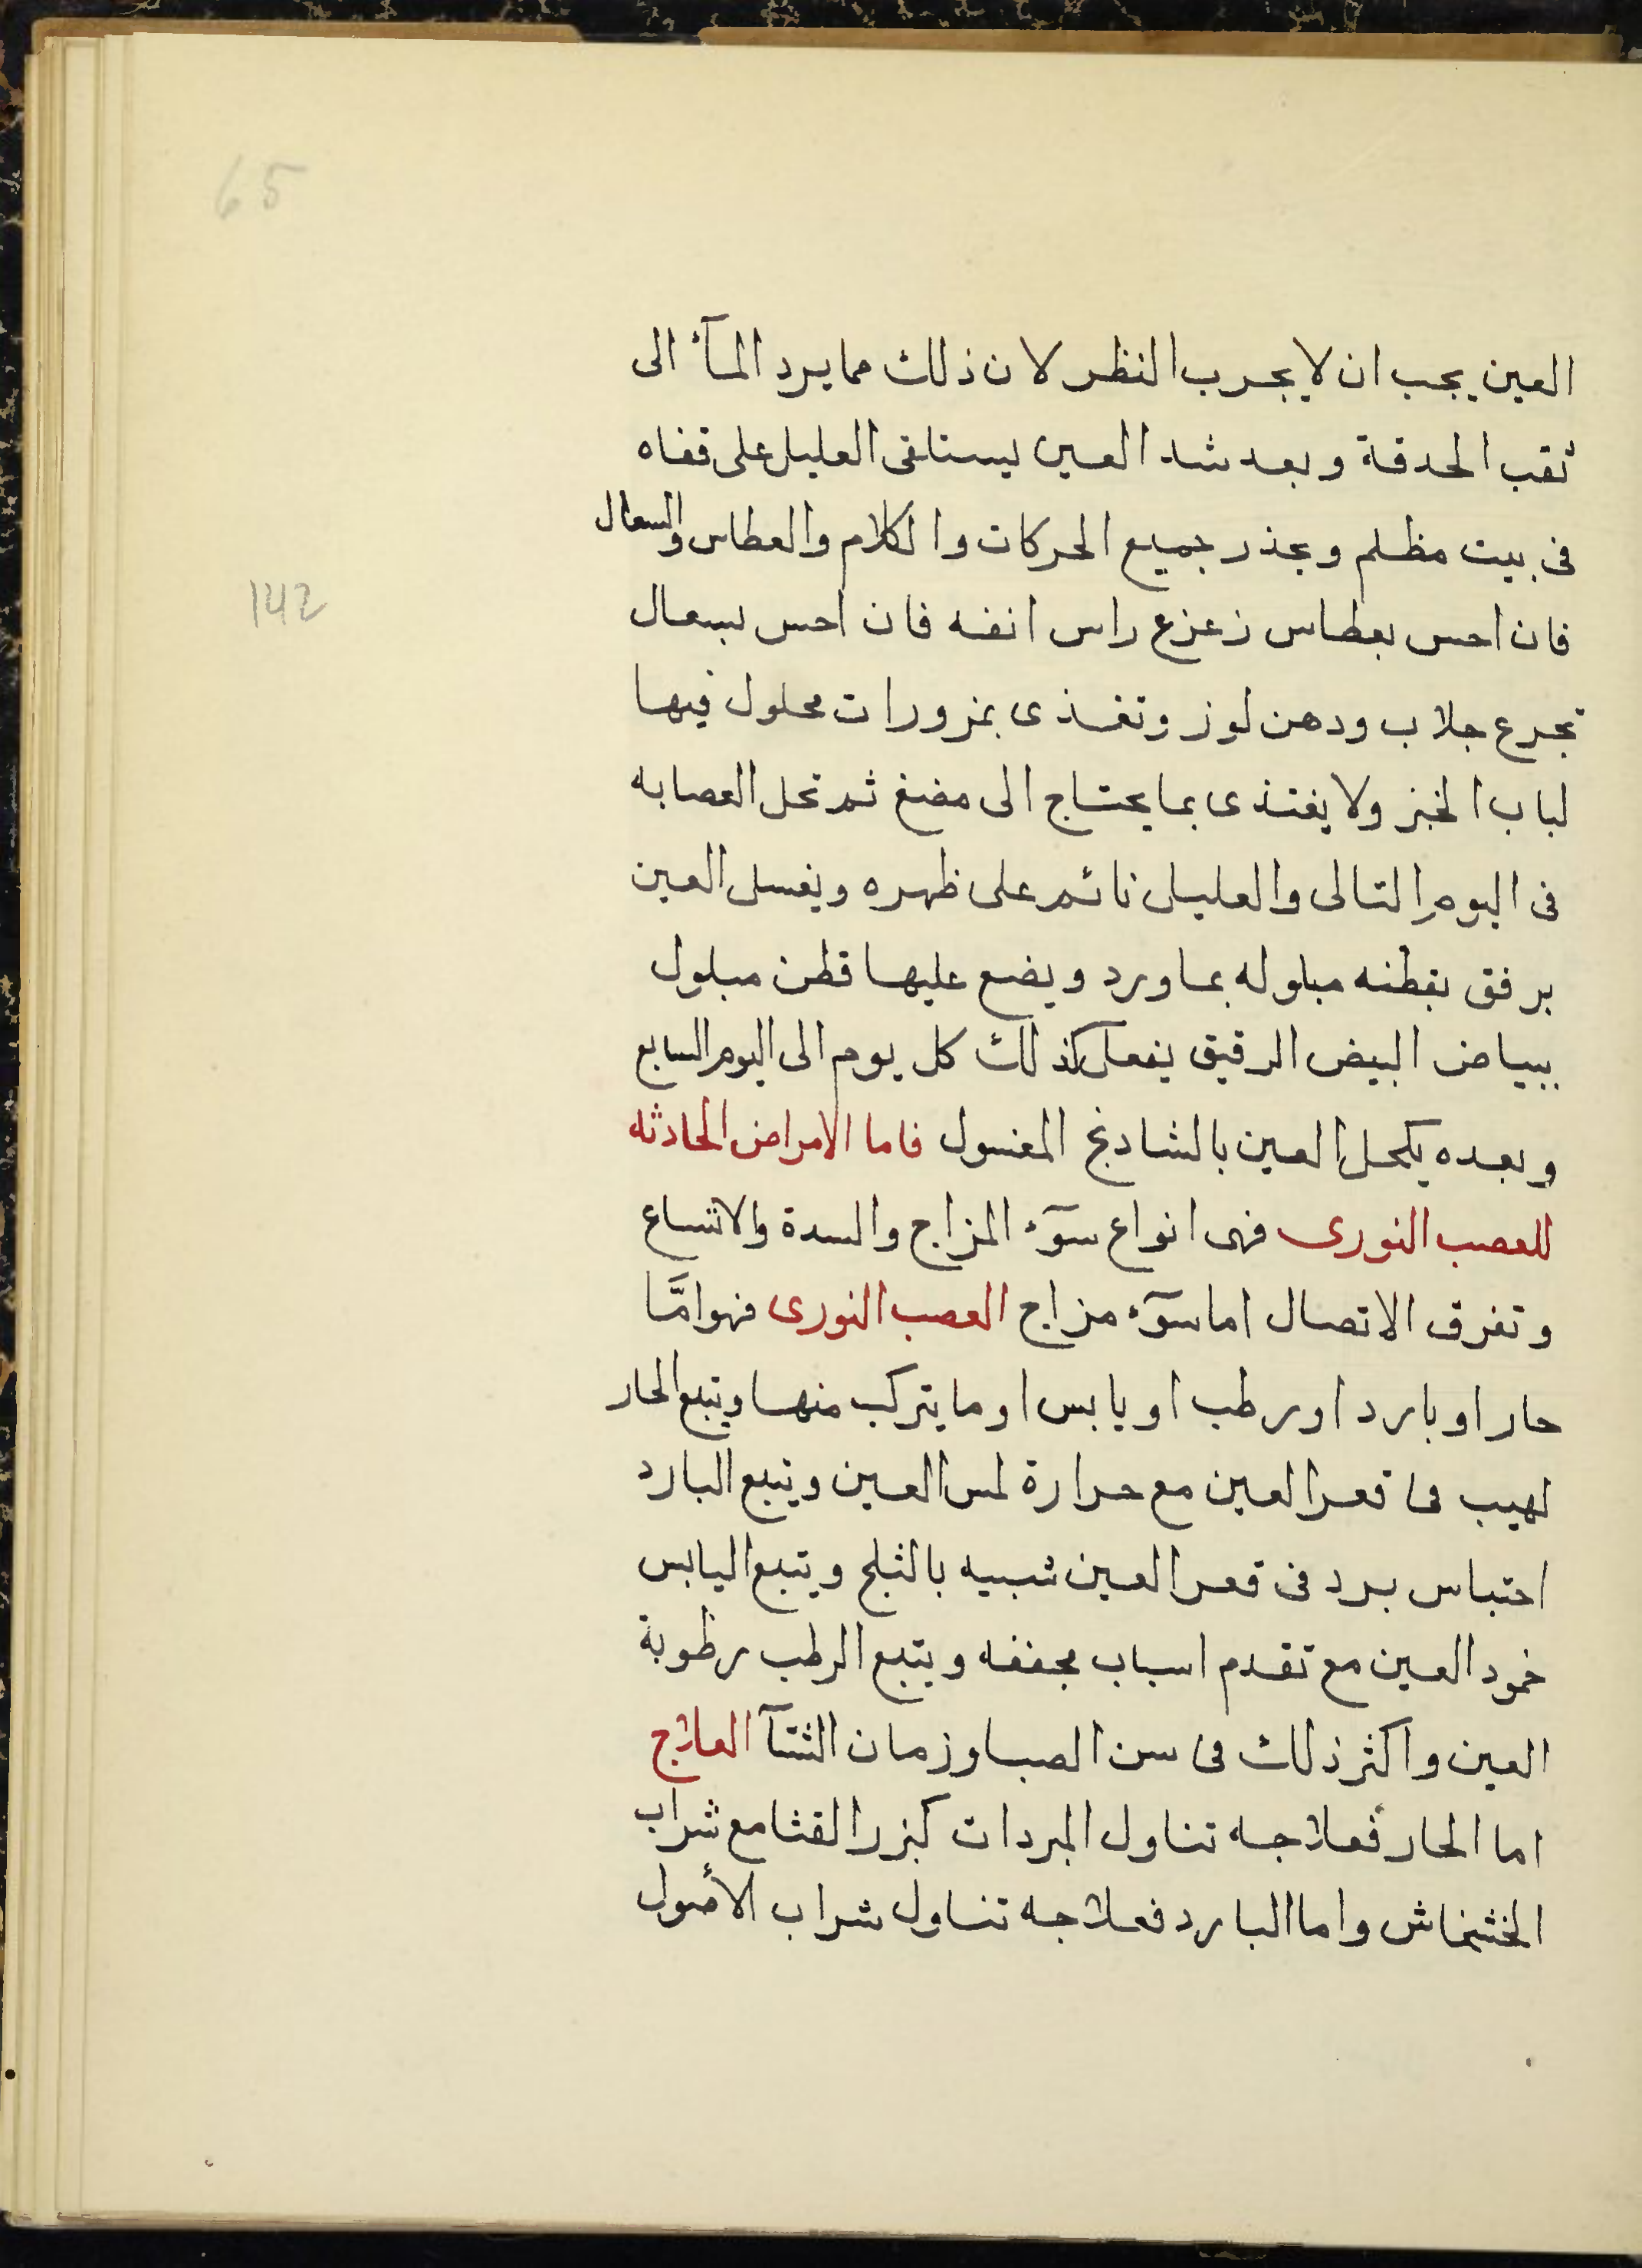 65
العين يجب ان لا يجرب النظر لان ذلك مما يرد المآء الى
ثقب الحدقة وبعد شد العين يستلقى العليل على قفاه
فى بيت مظلم ويحذر جميع الحركات والكلام والعطاس والسعال
142
فان احس بعطاس زعزع راس انفه فان احس بسعال
تجرع جلاب ودهن لوز وتغذى بمزورات محلول فيها
لباب الخبز ولا يغتذى بما يحتاج الى مضغ ثم تحل العصابه
فى اليوم التالى والعليل نائم على ظهره ويغسل العين
برفق بقطنه مبلوله بماورد ويضع عليها قطن مبلول
ببياض البيض الرقيق يفعل كذلك كل يوم الى اليوم السابع
وبعده يكحل العين بالشادنج المغسول فاما الامراض الحادثه
للعصب النورى فهى انواع سوٓء المزاج والسدة والاتساع
وتفرق الاتصال اما سوٓء مزاج العصب النورى فهو امَّا
حار او بارد او رطب او يابس او ما يتركب منها ويتبع الحار
لهيب فى قعر العين مع حرارة لمس العين ويتبع البارد
احتباس برد فى قعر العين شبيه بالثلج ويتبع اليابس
خمود العين مع تقدم اسباب مجففه ويتبع الرطب رطوبة
العين واكثر ذلك فى سن الصبا وزمان الشتآ العلاج
اما الحار فعلاجه تناول المبردات كبزر القثا مع شراب
الخشخاش واما البارد فعلاجه تناول شراب الأصول